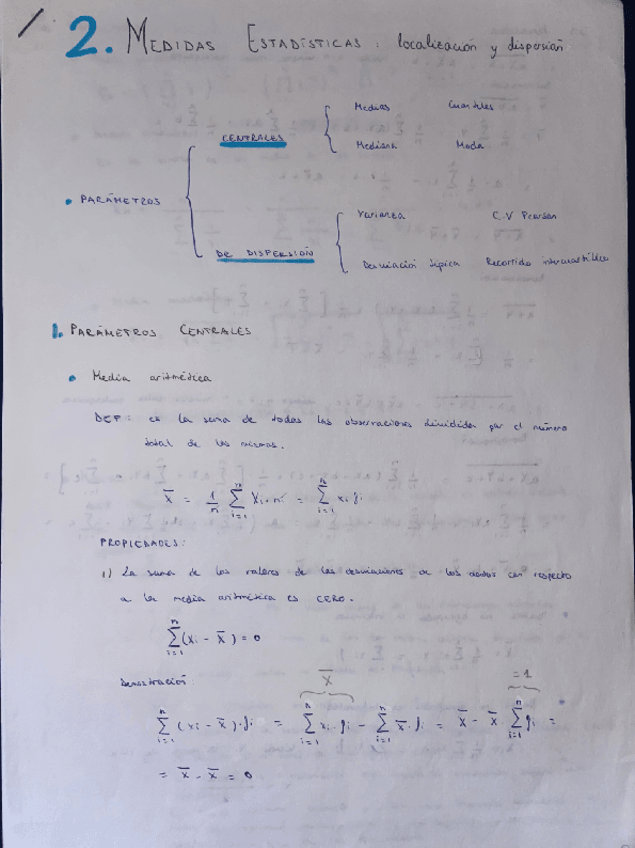 2. MEDIDAS ESTADÍSTICAS: localización y dispersión
Medias Cuartiles
CENTRALES
Mediana Moda
• PARÁMETROS
Varianza C.V Pearson
DE DISPERSIÓN
Desviación típica Recorrido intercuartílico
1. PARÁMETROS CENTRALES
• Media aritmética
DEF: es la suma de todas las observaciones dividida por el número
total de las mismas.
x̄ = 1/n ∑ᵢ₌₁ⁿ xᵢ·nᵢ = ∑ᵢ₌₁ⁿ xᵢ fᵢ
PROPIEDADES:
1) La suma de los valores de las desviaciones de los datos con respecto
a la media aritmética es CERO.
∑ᵢ₌₁ⁿ (xᵢ - x̄) = 0
Demostración:
x̄ =1
∑ᵢ₌₁ⁿ (xᵢ - x̄)·fᵢ = ∑ᵢ₌₁ⁿ xᵢ·fᵢ - ∑ᵢ₌₁ⁿ x̄·fᵢ = x̄ - x̄ ∑ᵢ₌₁ⁿ fᵢ =
= x̄ - x̄ = 0